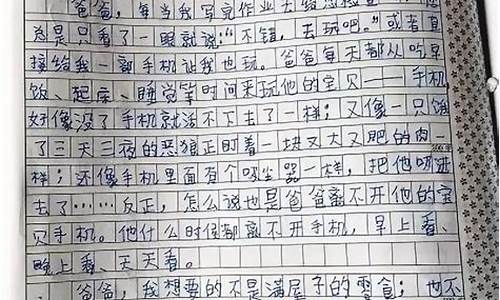 爸爸，每当我写完作业去给您检查
总是只看了一眼就说“不错，去玩吧。”或者直
接给我一部手机让我也玩。爸爸每天都从吃早
饭、起床、睡觉等时间来玩他的宝贝——手机
好像没了手机就活不下去了一样；又像一只饿
了三天三夜的恶狼正盯着一块又大又肥的肉一
样；还像手机里面有个吸尘器一样，把他吸进
去了……反正，怎么说也是爸爸离不开他的宝
贝手机。他什么时候都离不开手机，早上看、
晚上看、天天看。
爸爸，我想要的不是满屋子的零食；也不